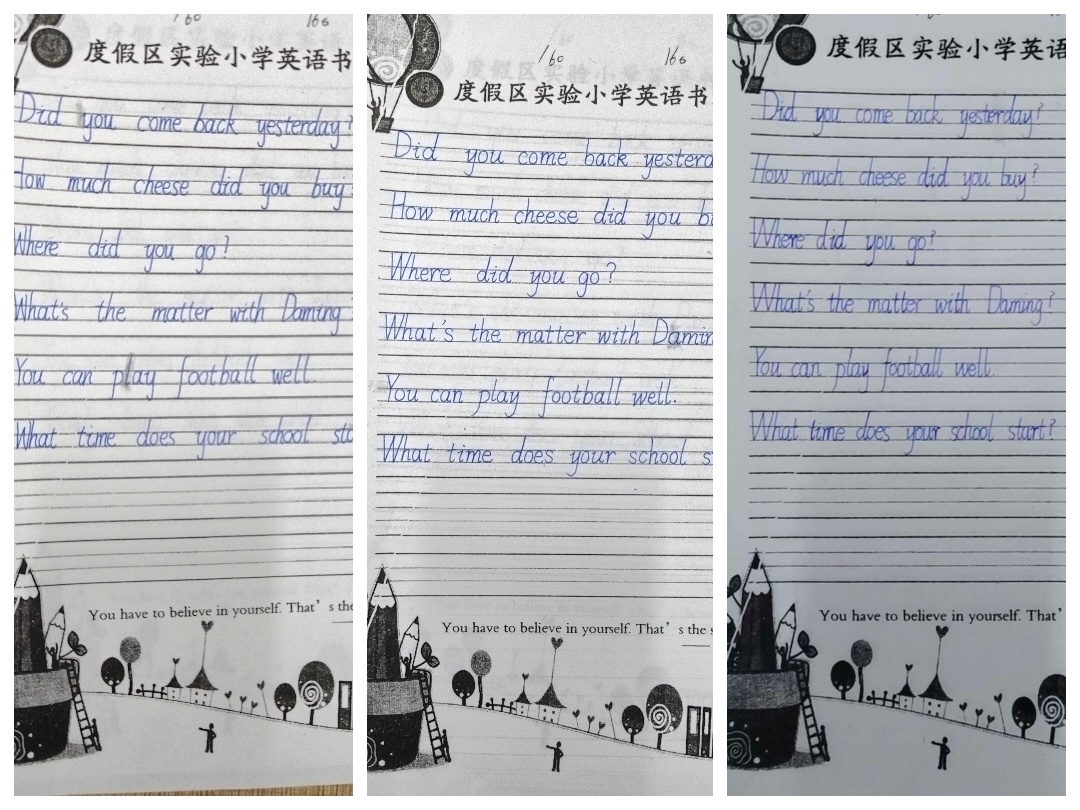 160 166
度假区实验小学英语书
Did you come back yesterday?
How much cheese did you buy
Where did you go?
What's the matter with Daming?
You can play football well.
What time does your school sta
You have to believe in yourself. That's the
160 166
度假区实验小学英语书
Did you come back yesterd
How much cheese did you b
Where did you go?
What's the matter with Damin
You can play football well.
What time does your school s
You have to believe in yourself. That's the s
度假区实验小学英语
Did you come back yesterday?
How much cheese did you buy?
Where did you go?
What's the matter with Daming?
You can play football well.
What time does your school start?
You have to believe in yourself. That'